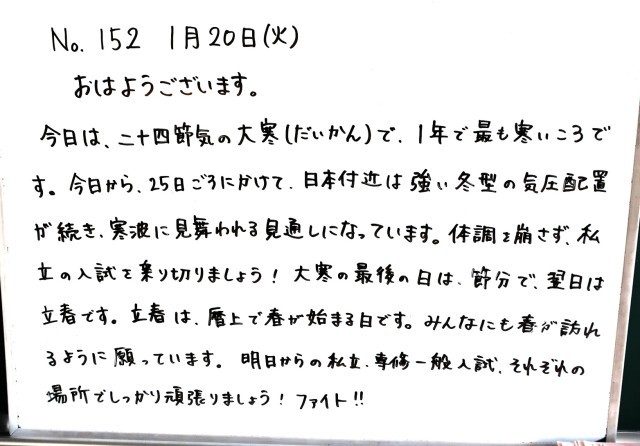 No. 152 1月20日(火)
おはようございます。
今日は、二十四節気の大寒(だいかん)で、1年で最も寒いころで
す。今日から、25日ごろにかけて、日本付近は強い冬型の気圧配置
が続き、寒波に見舞われる見通しになっています。体調を崩さず、私
立の入試を乗り切りましょう！大寒の最後の日は、節分で、翌日は
立春です。立春は、暦上で春が始まる日です。みんなにも春が訪れ
るように願っています。明日からの私立、専修一般入試、それぞれの
場所でしっかり頑張りましょう！ファイト!!